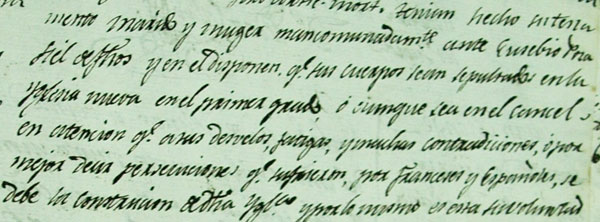 tenian hecho su testa
mento marido y muger mancomunadamte. ante Eusebio
fiel de fhos y en el disponen, qe. sus cuerpos sean sepultados en la
Yglesia nueva en el primer grado, ó aunque sea en el cancel
en atencion qe. á sus desvelos, fatigas, y muchas contradiciones, ó por
mejor decir persecuciones qe. sufrieron, por franceses y Españoles, se
debe la construcion de dha Yglesia y por lo mismo es esta su voluntad